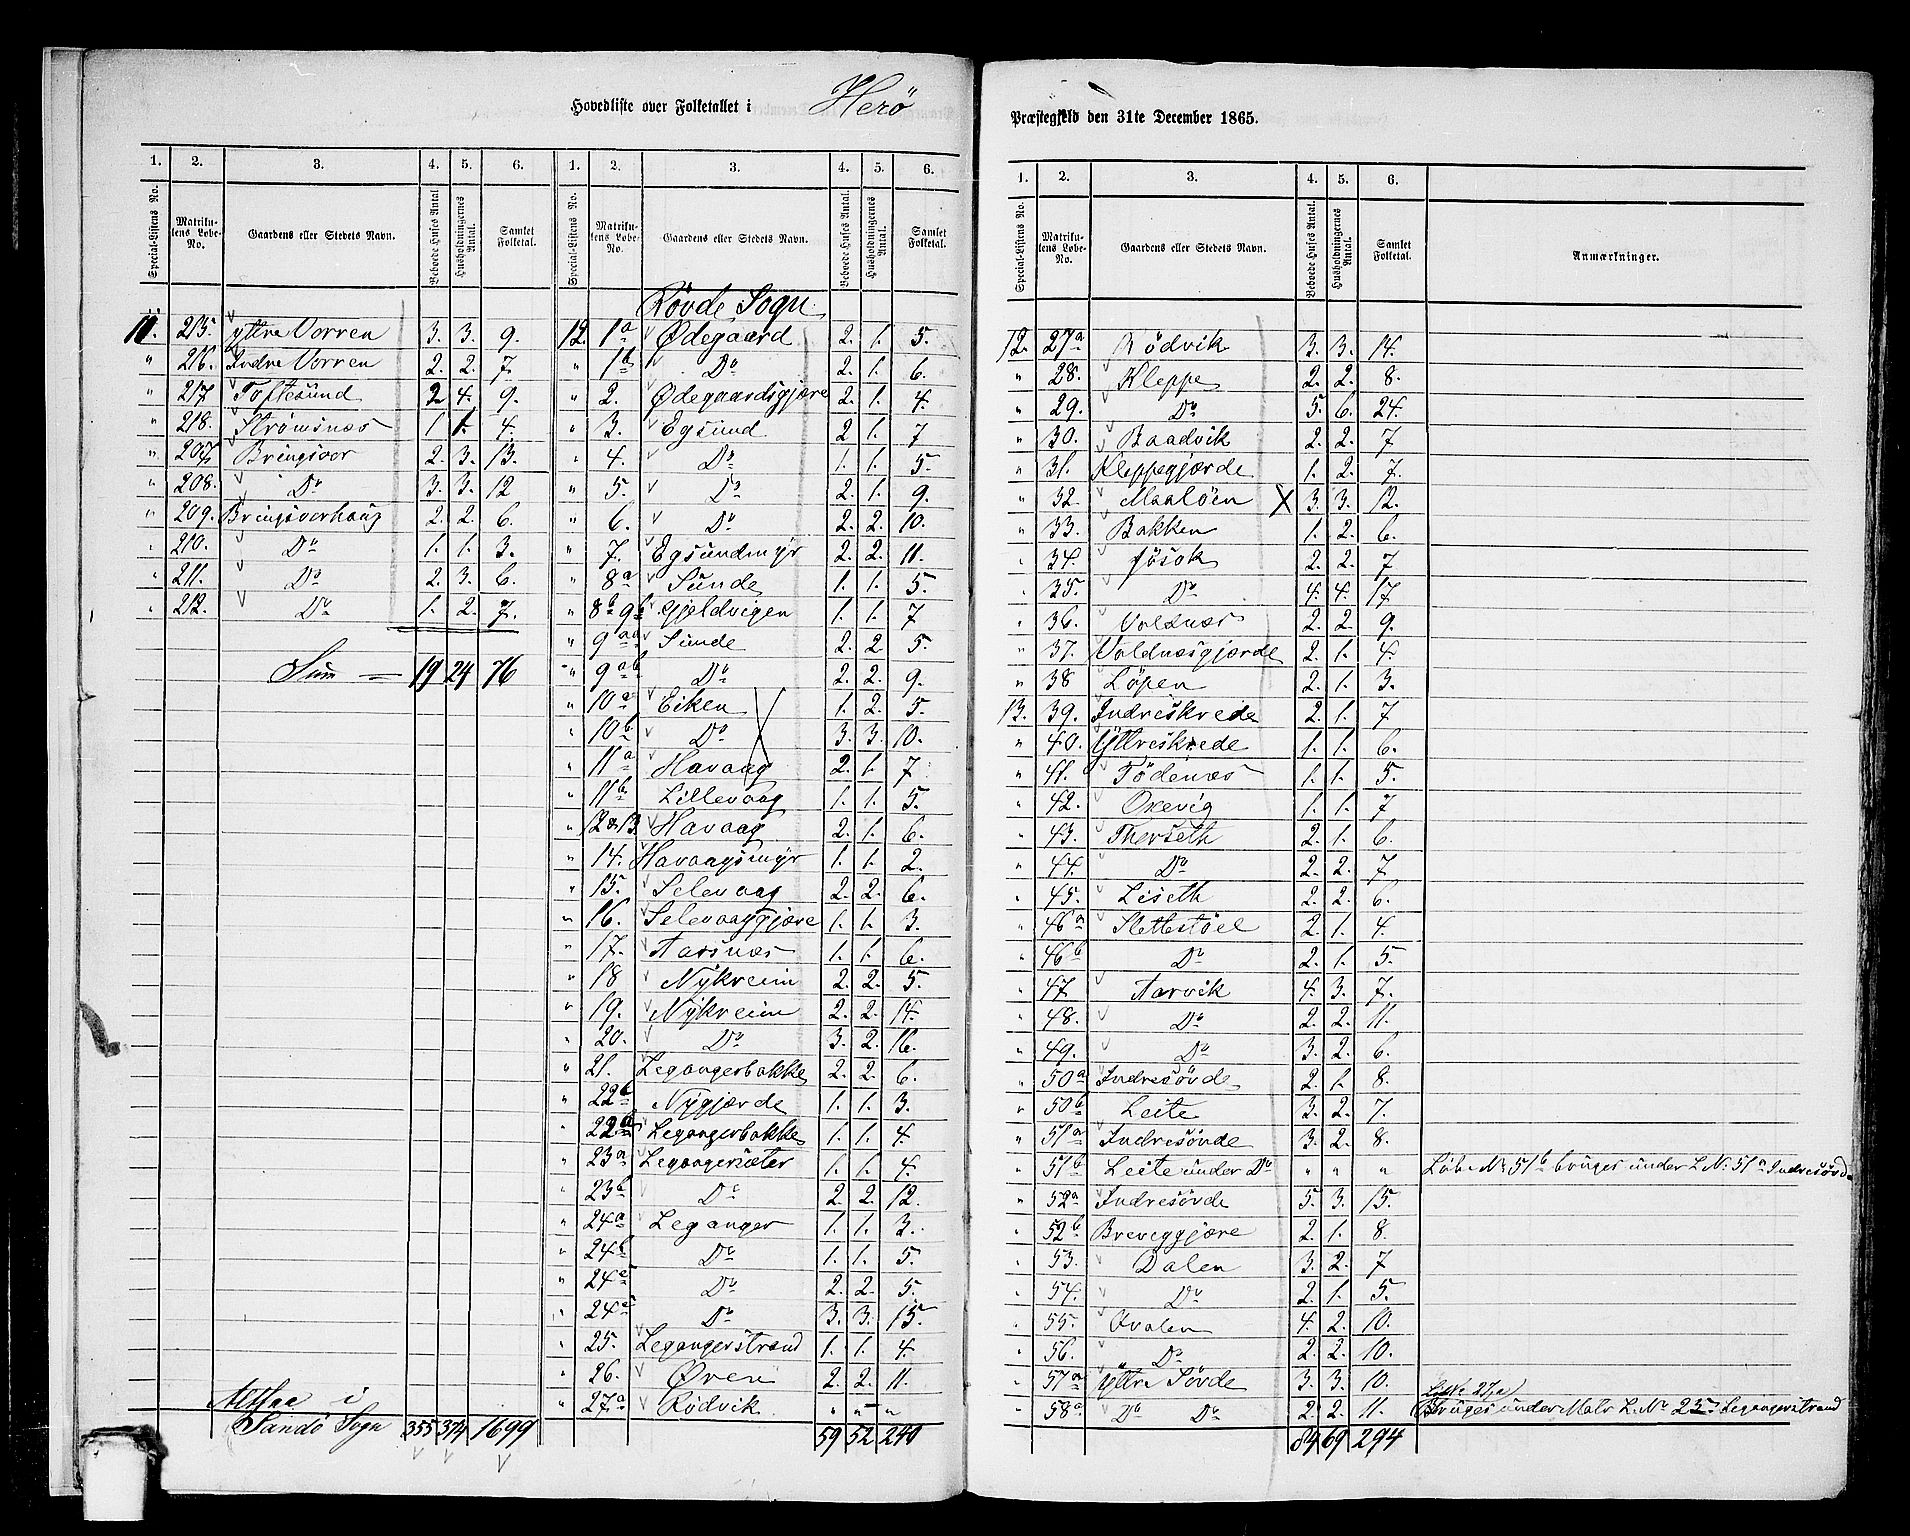 Hovedliste over Folketallet i Herö
Præstegjeld den 31te December 1865.
1. 2. 3. 4. 5. 6. 1. 2. 3. 4. 5. 6.
Special-Listens No. Matrikulens Løbe-No. Gaardens eller Stedets Navn. Beboede Huses Antal Husholdningernes Antal. Samlet Folketal. Special-Listens No. Matrikulens Løbe-No. Gaardens eller Stedets Navn. Beboede Huses Antal. Husholdningernes Antal. Samlet Folketal.
11. 215. Yttre Vorren 3. 3. 9.
" 216. Indre Vorren 2. 2. 7.
" 217 Toftesund 2 4. 9.
" 218. Strömsnæs 1 1. 4.
" 207 Bringsvor 2. 3. 13.
" 208. Do 3. 3. 12
" 209. Bringsvorhaug 2. 2. 6.
" 210. Do 1. 1. 3.
" 211. Do 2. 3. 6.
" 212. Do 1. 2. 7.
Sum = 19 24 76
Altsaa i
Sandö Sogn 355 374 1699
Rövde Sogn
12. 1a Ødegaard 2. 1. 5.
" 1b Do 2. 1. 6.
" 2. Ødegaardsgjære 2. 1. 4.
" 3. Egsund 2 1. 7
" 4. Do 1. 1. 5.
" 5. Do 2. 1. 9.
" 6. Do 2. 2. 10.
" 7. Egsundmyr 2. 2. 11.
" 8a Sunde 1. 1. 5.
" 8b 9b Gjeldvigen 1. 1. 7
" 9aa Sunde 2. 2. 5.
" 9ab Do 2. 2. 9.
" 10a Eiken 1. 2. 5.
" 10b Do 3. 3. 10.
" 11a Havaag 2. 1. 7
" 11b Lillevaag 1. 1. 5.
" 12 & 13. Havaag 2. 1. 6.
" 14. Havaagsmyr 1. 1. 2.
" 15. Selevaag 2. 2. 6.
" 16. Selevaaggjære 1. 1. 3.
" 17. Aarsnæs 1. 1. 6.
" 18 Nykreim 2. 2. 5.
" 19. Nykreim 2. 2. 14.
" 20. Do 3. 2. 16.
" 21. Legangerbakke 2. 2. 6.
" 22b Nygjærde 1. 1. 3.
" 22a Legangerbakke 1. 1. 4.
" 23a Legangersæter 1. 1. 4.
" 23b Do 2. 2. 12.
" 24a Leganger 1. 1. 3.
" 24b Do 1. 1. 5.
" 24c Do 2. 2. 5.
" Do 3. 3. 15.
" 25. Legangerstrand 1. 1. 4.
" 26. Øren 2. 2. 11.
" 27a Rödvik " " "
59 52 240
1. 2. 3. 4. 5. 6.
Special-Listens No. Matrikulens Løbe-No. Gaardens eller Stedets Navn. Beboede Huses Antal. Husholdningernes Antal. Samlet Folketal. Anmærkninger.
12. 27a Rödvik 3. 3. 14.
" 28. Kleppe 2. 2. 8.
" 29. Do 5. 6. 24.
" 30. Baadvik 2. 2. 7
" 31. Kleppegjærde 1. 2. 7.
" 32. Maalöen X 3. 3. 12.
" 33. Bakken 1. 2. 6.
" 34. Jösok 2. 2. 7
" 35. Do 4. 4. 17
" 36. Voldnæs 2. 2 9.
" 37. Voldnæsgjærde 2. 1. 4.
" 38 Löpen 2. 1. 3.
13. 39. Indreskrede 2. 1. 7
" 40. Yttreskrede 1. 1. 6.
" 41. Tödenæs 1. 1. 5.
" 42. Oxevig 1. 1. 7
" 43. Therseth 2. 1. 6.
" 44. Do 2. 2. 7
" 45. Liseth 2. 2. 6.
" 46a Slettestöel 2. 1. 4.
" 46b Do 2. 1. 5.
" 47 Aarvik 4. 3. 7.
" 48. Do 2. 2. 11.
" 49. Do 3. 2. 6.
" 50a Indresövde 2. 1. 8.
" 50b Leite 3. 2. 7.
" 51a Indresövde 3. 2. 8.
" 51b Leite under Do " " " Löbe No 51b bruges under L. No 51a Indresövde
" 52a Indresövde 5. 3. 15.
" 52b Breviggjære 2. 1. 8.
" 53. Dalen 3. 2. 7
" 54. Do 2. 1. 5.
" 55. Ovalen 4. 2. 10.
" 56. Do 2. 2. 10.
" 57a Yttre Sövde 3. 3. 10.
" 58a Do Do 2. 2. 11. Bruges under Matr L. No 25 Legangerstrand
84 69 294